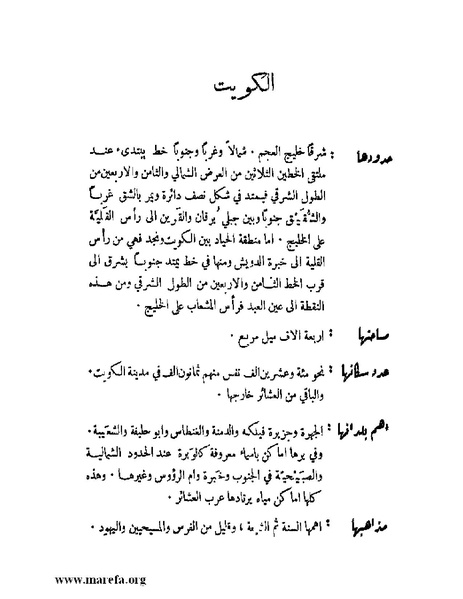 الكويت
حدودها : شرقا خليج العجم . شمالاً وغرباً وجنوباً خط يبتدىء عند
ملتقى الخطين الثلاثين من العرض الشمالي والثامن والاربعين من
الطول الشرقي فيمتد في شكل نصف دائرة ويمر بالشق غرباً
والشقيق جنوباً وبين جبلي بُرقان والقرين الى رأس القليّة
على الخليج . اما منطقة الحياد بين الكويت ونجد فهي من رأس
القلية الى خبرة الدويش ومنها في خط يمتد جنوباً بشرق الى
قرب الخط الثامن والاربعين من الطول الشرقي ومن هذه
النقطة الى عين العبد فرأس المشعاب على الخليج .
مساحتها : اربعة الاف ميل مربع .
عدد سكانها : نحو مئة وعشرين الف نفس منهم ثمانون الف في مدينة الكويت .
والباقي من العشائر خارجها .
اهم بلدانها : الجهرة وجزيرة فيلكه والدمنة والفنطاس وابو حليفة والشعيبة .
وفي برها اماكن بأمياه معروفة كالوبرة عند الحدود الشمالية
والصبيحيّة في الجنوب وخبرة وام الرؤوس وغيرها . وهذه
كلها اماكن مياه يرتادها عرب العشائر .
مذاهبها : اهمها السنة ثم الشيعة ، وقليل من الفرس والمسيحيين واليهود .
www.marefa.org